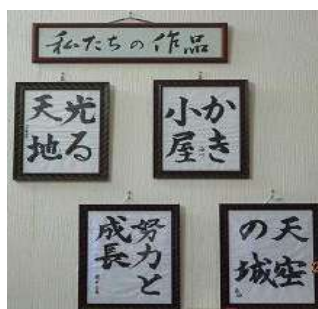 私たちの作品
光る
天地
かき
小屋
努力と
成長
天空
の城